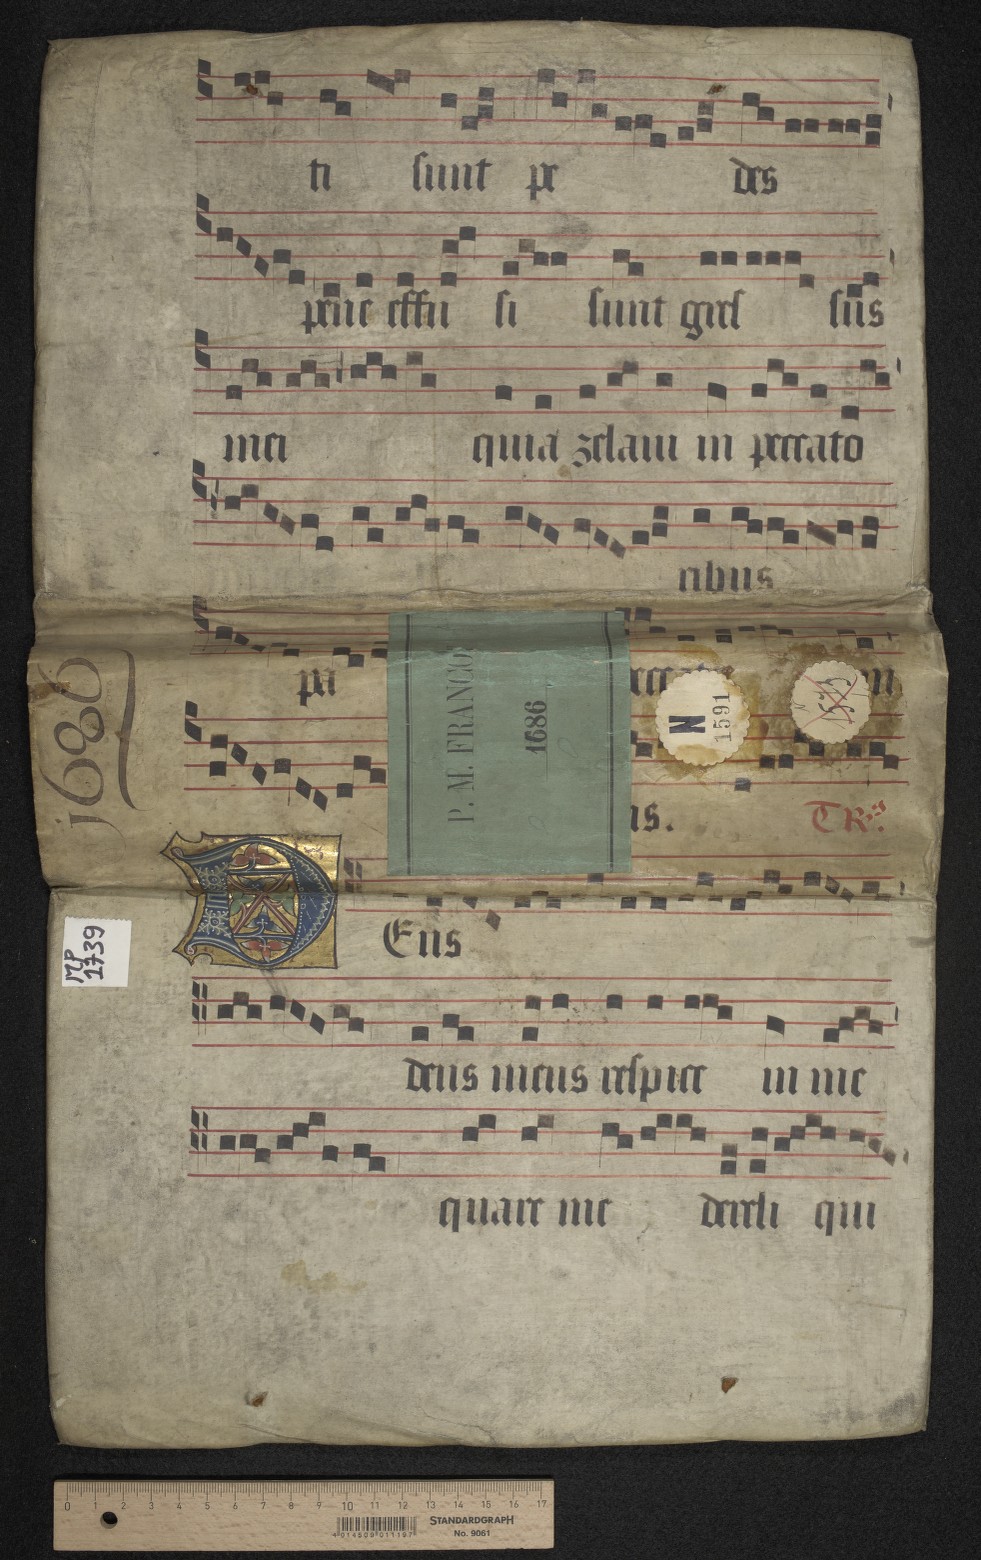 ti sunt pe des
pene effu si sunt gres sus
mei quia zelaui in peccato
ribus
pa
P. M. FRANCO
1686
1686
N
1591
us. TR
MP
1739
Deus
deus meus respice in me
quare me dereli qui
0 1 2 3 4 5 6 7 8 9 10 11 12 13 14 15 16 17
STANDARDGRAPH
No. 9061